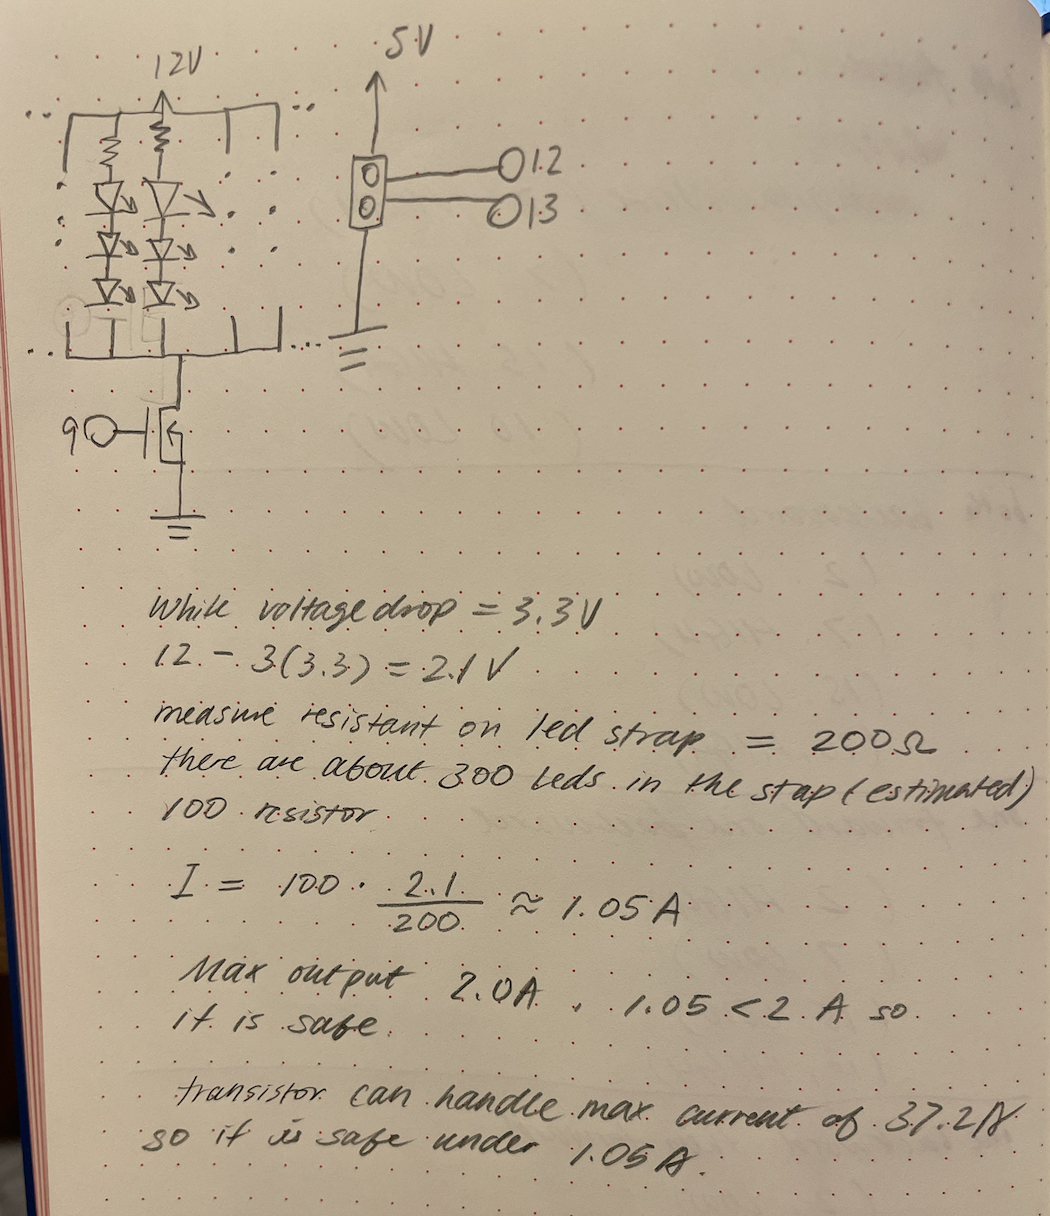 12V
5V
12
13
9
White voltage drop = 3.3V
12 - 3(3.3) = 2.1V
measure resistant on led strap = 200Ω
there are about 300 leds in the stap (estimated)
100 resistor
I = 100 · 2.1/200 ≈ 1.05A
Max output 2.0A, 1.05 < 2 A so
it is safe.
transistor can handle max current of 37.2A
so it is safe under 1.05A.